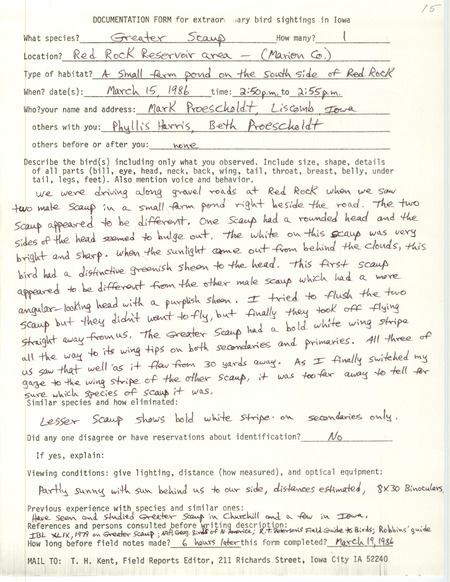 15
DOCUMENTATION FORM for extraor nary bird sightings in Iowa
What species? Greater Scaup How many? 1
Location? Red Rock Reservoir area - (Marion Co.)
Type of habitat? A small farm pond on the south side of Red Rock
When? date(s): March 15, 1986 time: 2:50 p.m. to 2:55 p.m.
Who? your name and address: Mark Proescholdt, Liscomb Iowa
others with you: Phyllis Harris, Beth Proescholdt
others before or after you: none
Describe the bird(s) including only what you observed. Include size, shape, details
of all parts (bill, eye, head, neck, back, wing, tail, throat, breast, belly, under
tail, legs, feet). Also mention voice and behavior.
We were driving along gravel roads at Red Rock when we saw
two male scaup in a small farm pond right beside the road. The two
scaup appeared to be different. One scaup had a rounded head and the
sides of the head seemed to bulge out. The white on this scaup was very
bright and sharp. When the sunlight came out from behind the clouds, this
bird had a distinctive greenish sheen to the head. This first scaup
appeared to be different from the other male scaup which had a more
angular-looking head with a purplish sheen. I tried to flush the two
scaup but they didn't want to fly, but finally they took off flying
straight away from us. The Greater Scaup had a bold white wing stripe
all the way to its wing tips on both secondaries and primaries. All three of
us saw that well as it flew from 30 yards away. As I finally switched my
gaze to the wing stripe of the other scaup, it was too far away to tell for
sure which species of scaup it was.
Similar species and how eliminated:
Lesser Scaup shows bold white stripe on secondaries only.
Did any one disagree or have reservations about identification? No
If yes, explain:
Viewing conditions: give lighting, distance (how measured), and optical equipment:
Partly sunny with sun behind us to our side, distances estimated, 8X30 Binoculars
Previous experience with species and similar ones:
Have seen and studied Greater Scaup in Churchill and a few in Iowa.
References and persons consulted before writing description:
IBL XLIX, 1979 on Greater Scaup; Nat. Geog. Birds of N. America; R.T. Peterson's Field Guide to Birds; Robbins' guide
How long before field notes made? 6 hours later this form completed? March 19, 1986
MAIL TO: T. H. Kent, Field Reports Editor, 211 Richards Street, Iowa City IA 52240